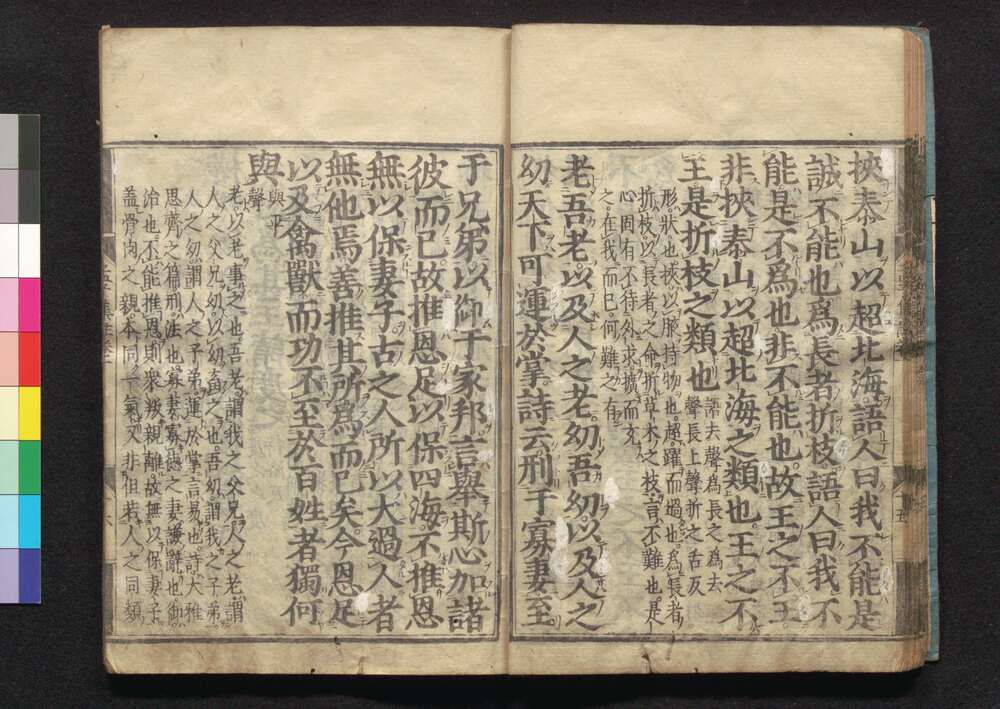 挾泰山以超北海語人曰我不能是
誠不能也爲長者折枝語人曰我不
能是不爲也非不能也故王之不王
非挾泰山以超北海之類也王之不
王是折枝之類也語去聲爲長之爲去
聲長上聲折之舌反
形狀也挾以腋持物也超躍而過也爲長者
折枝以長者之命折草木之枝言不難也是
心固有不待外求擴而充
之在我而已何難之有
老吾老以及人之老幼吾幼以及人之
幼天下可運於掌詩云刑于寡妻至
于兄弟以御于家邦言舉斯心加諸
彼而已故推恩足以保四海不推恩
無以保妻子古之人所以大過人者
無他焉善推其所爲而已矣今恩足
以及禽獸而功不至於百姓者獨何
與
與平
聲
老以老事之也吾老謂我之父兄人之老謂
人之父兄幼以幼畜之也吾幼謂我之子弟
人之幼謂人之子弟運於掌言易也詩大雅
思齊之篇刑法也寡妻寡德之妻謙辭也御
治也不能推恩則衆叛親離故無以保妻子
蓋骨肉之親本同一氣又非但若人之同類